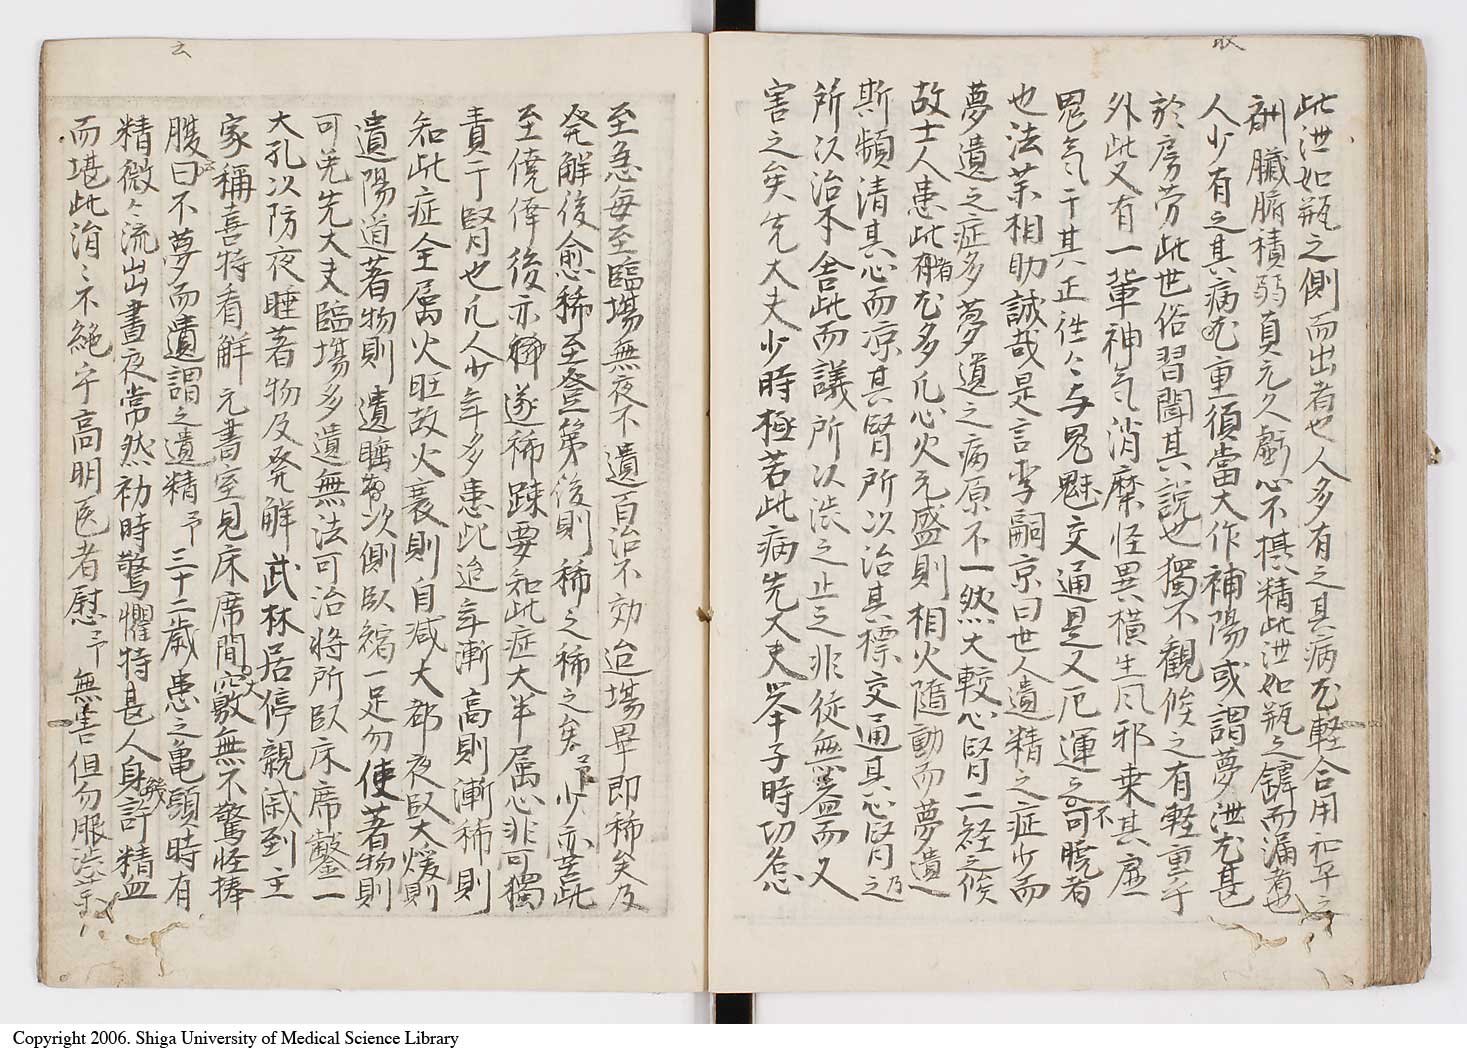 此泄如瓶之側而出者也人多有之其病尤軽合用和平之
剤臓腑積弱真元久虧心不摂精此泄如瓶之罅而漏者也
人少有之其病尤重須當大作補陽或謂夢泄尤甚
於房労此世俗習聞其説也獨不観候之有軽重乎
外此又有一輩神気消糜怪異横生風邪乗其虚
鬼気干其正往々与鬼魅交通是又厄運之不可暁者
也法薬相助誠哉是言李嗣京曰世人遺精之症少而
夢遺之症多夢遺之病原不一然大較心腎二経之候
故士人患此者有尤多凡心火亢盛則相火随動而夢遺
斯頻清其心而凉其腎所以治其標交通其心腎乃之
所以治本舎此而議所以渋之止之非徒無益而又
害之矣先大夫少時極苦此病先大夫举子時功怠
至急毎至臨場無夜不遺百治不効迨場畢即稀矣及
発解後愈稀至登第後則稀之稀之矣予少亦苦此
至僥倖後亦稀遂稀踈要知此症大半属心非可獨
責于腎也凡人少年多患此迨年漸高則漸稀則
知此症全属火旺故火衰則自减大都夜臥大煖則
遺陽道著物則遺睡寿次側臥縮一足勿使著物則
可免先大夫臨場多遺無法可治将所臥床席鑿一
大孔以防夜睡著物及発解武林居停親戚到主
家稱喜特看解元書室見床席間一大竅無不驚怪捧
腹曰不夢而遺謂之遺精予三十二歳患之亀頭時有
精微々流出晝夜常然初時驚懼特甚人身幾許精血
而堪此涓々不絶乎高明医者慰予無害但勿服渋薬